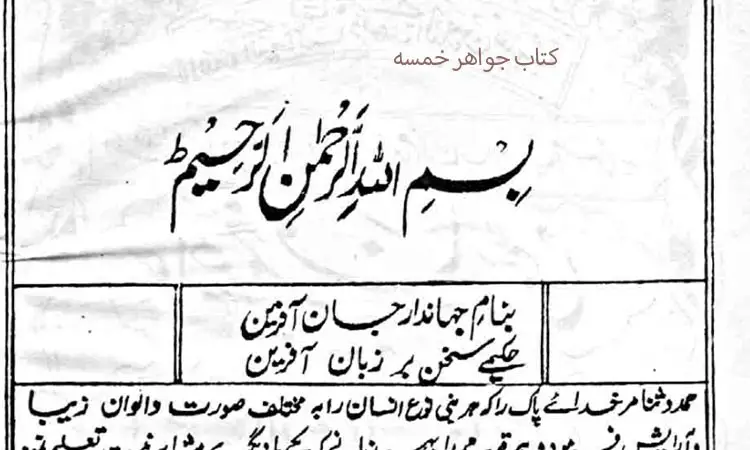 کتاب جواهر خمسه
بِسْمِ اللهِ الرَّحْمٰنِ الرَّحِیْمِ ط
بنامِ جہاندار جان آفریں
حکیمے سخن بر زبان آفریں
حمد و ثنا مر خدائے پاک را کہ ہر بنی نوع انسان را بہ مختلف صورت والوان زیبا